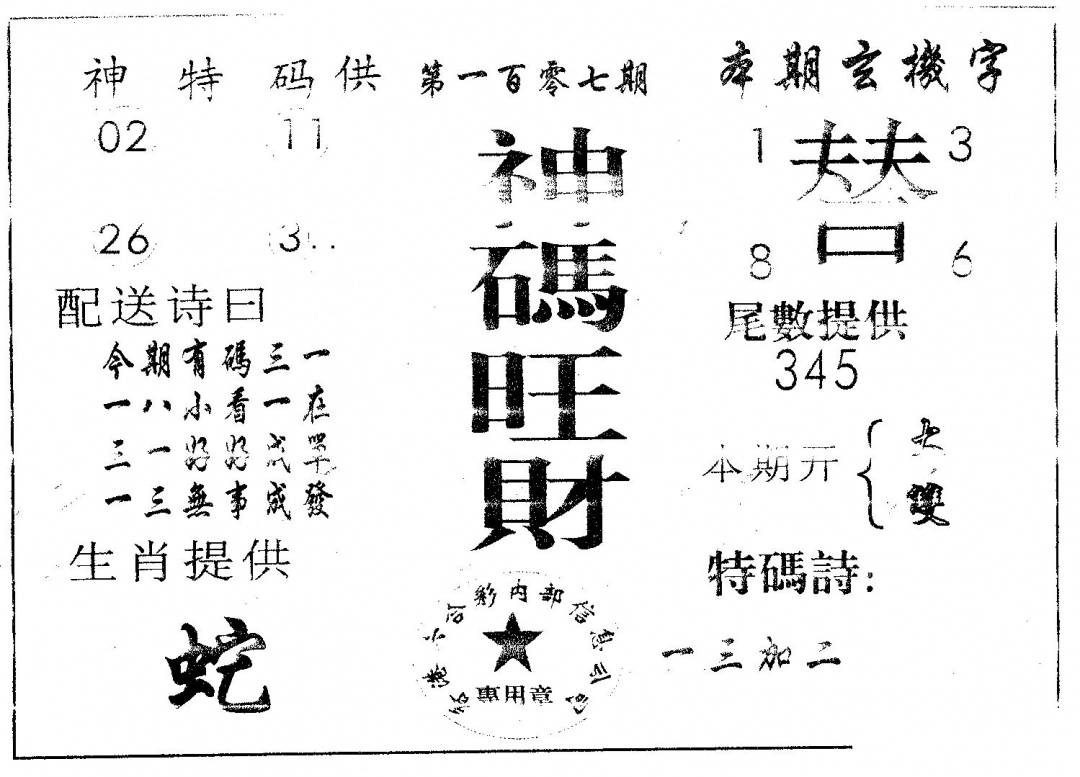 神特码供
02 11
26 3
配送诗曰
今期有碼三一
一八小看一在
三一好好成單
一三無事成發
生肖提供
蛇
第一百零七期
神碼旺財
香港六合彩內部信息公司
專用章
本期玄機字
1 替 3
8 6
尾數提供
345
本期开{大
雙
特碼詩:
一三加二